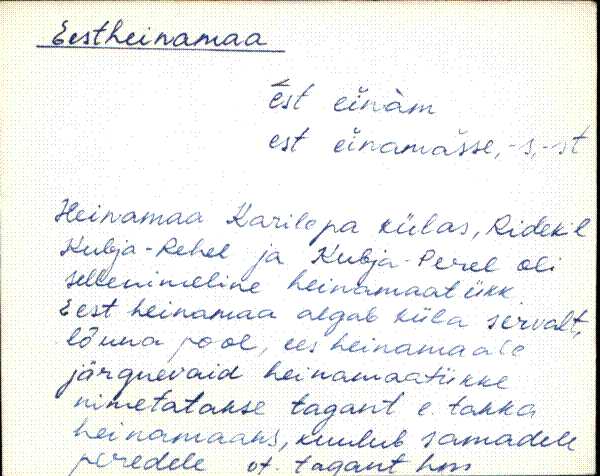 Eestheinamaa
èst eìnàm
est eìnamàsse, -s, -st
Heinamaa Karilepa külas, Ridekil
Kubja-Rehel ja Kubja-Perel oli
sellenimeline heinamaatükk.
Eest heinamaa algab küla servalt,
lõuna pool, eesheinamaale
järgnevaid heinamaatükke
nimetatakse tagant e. takka
heinamaaks, kuulub samadele
peredele vt. tagant hm